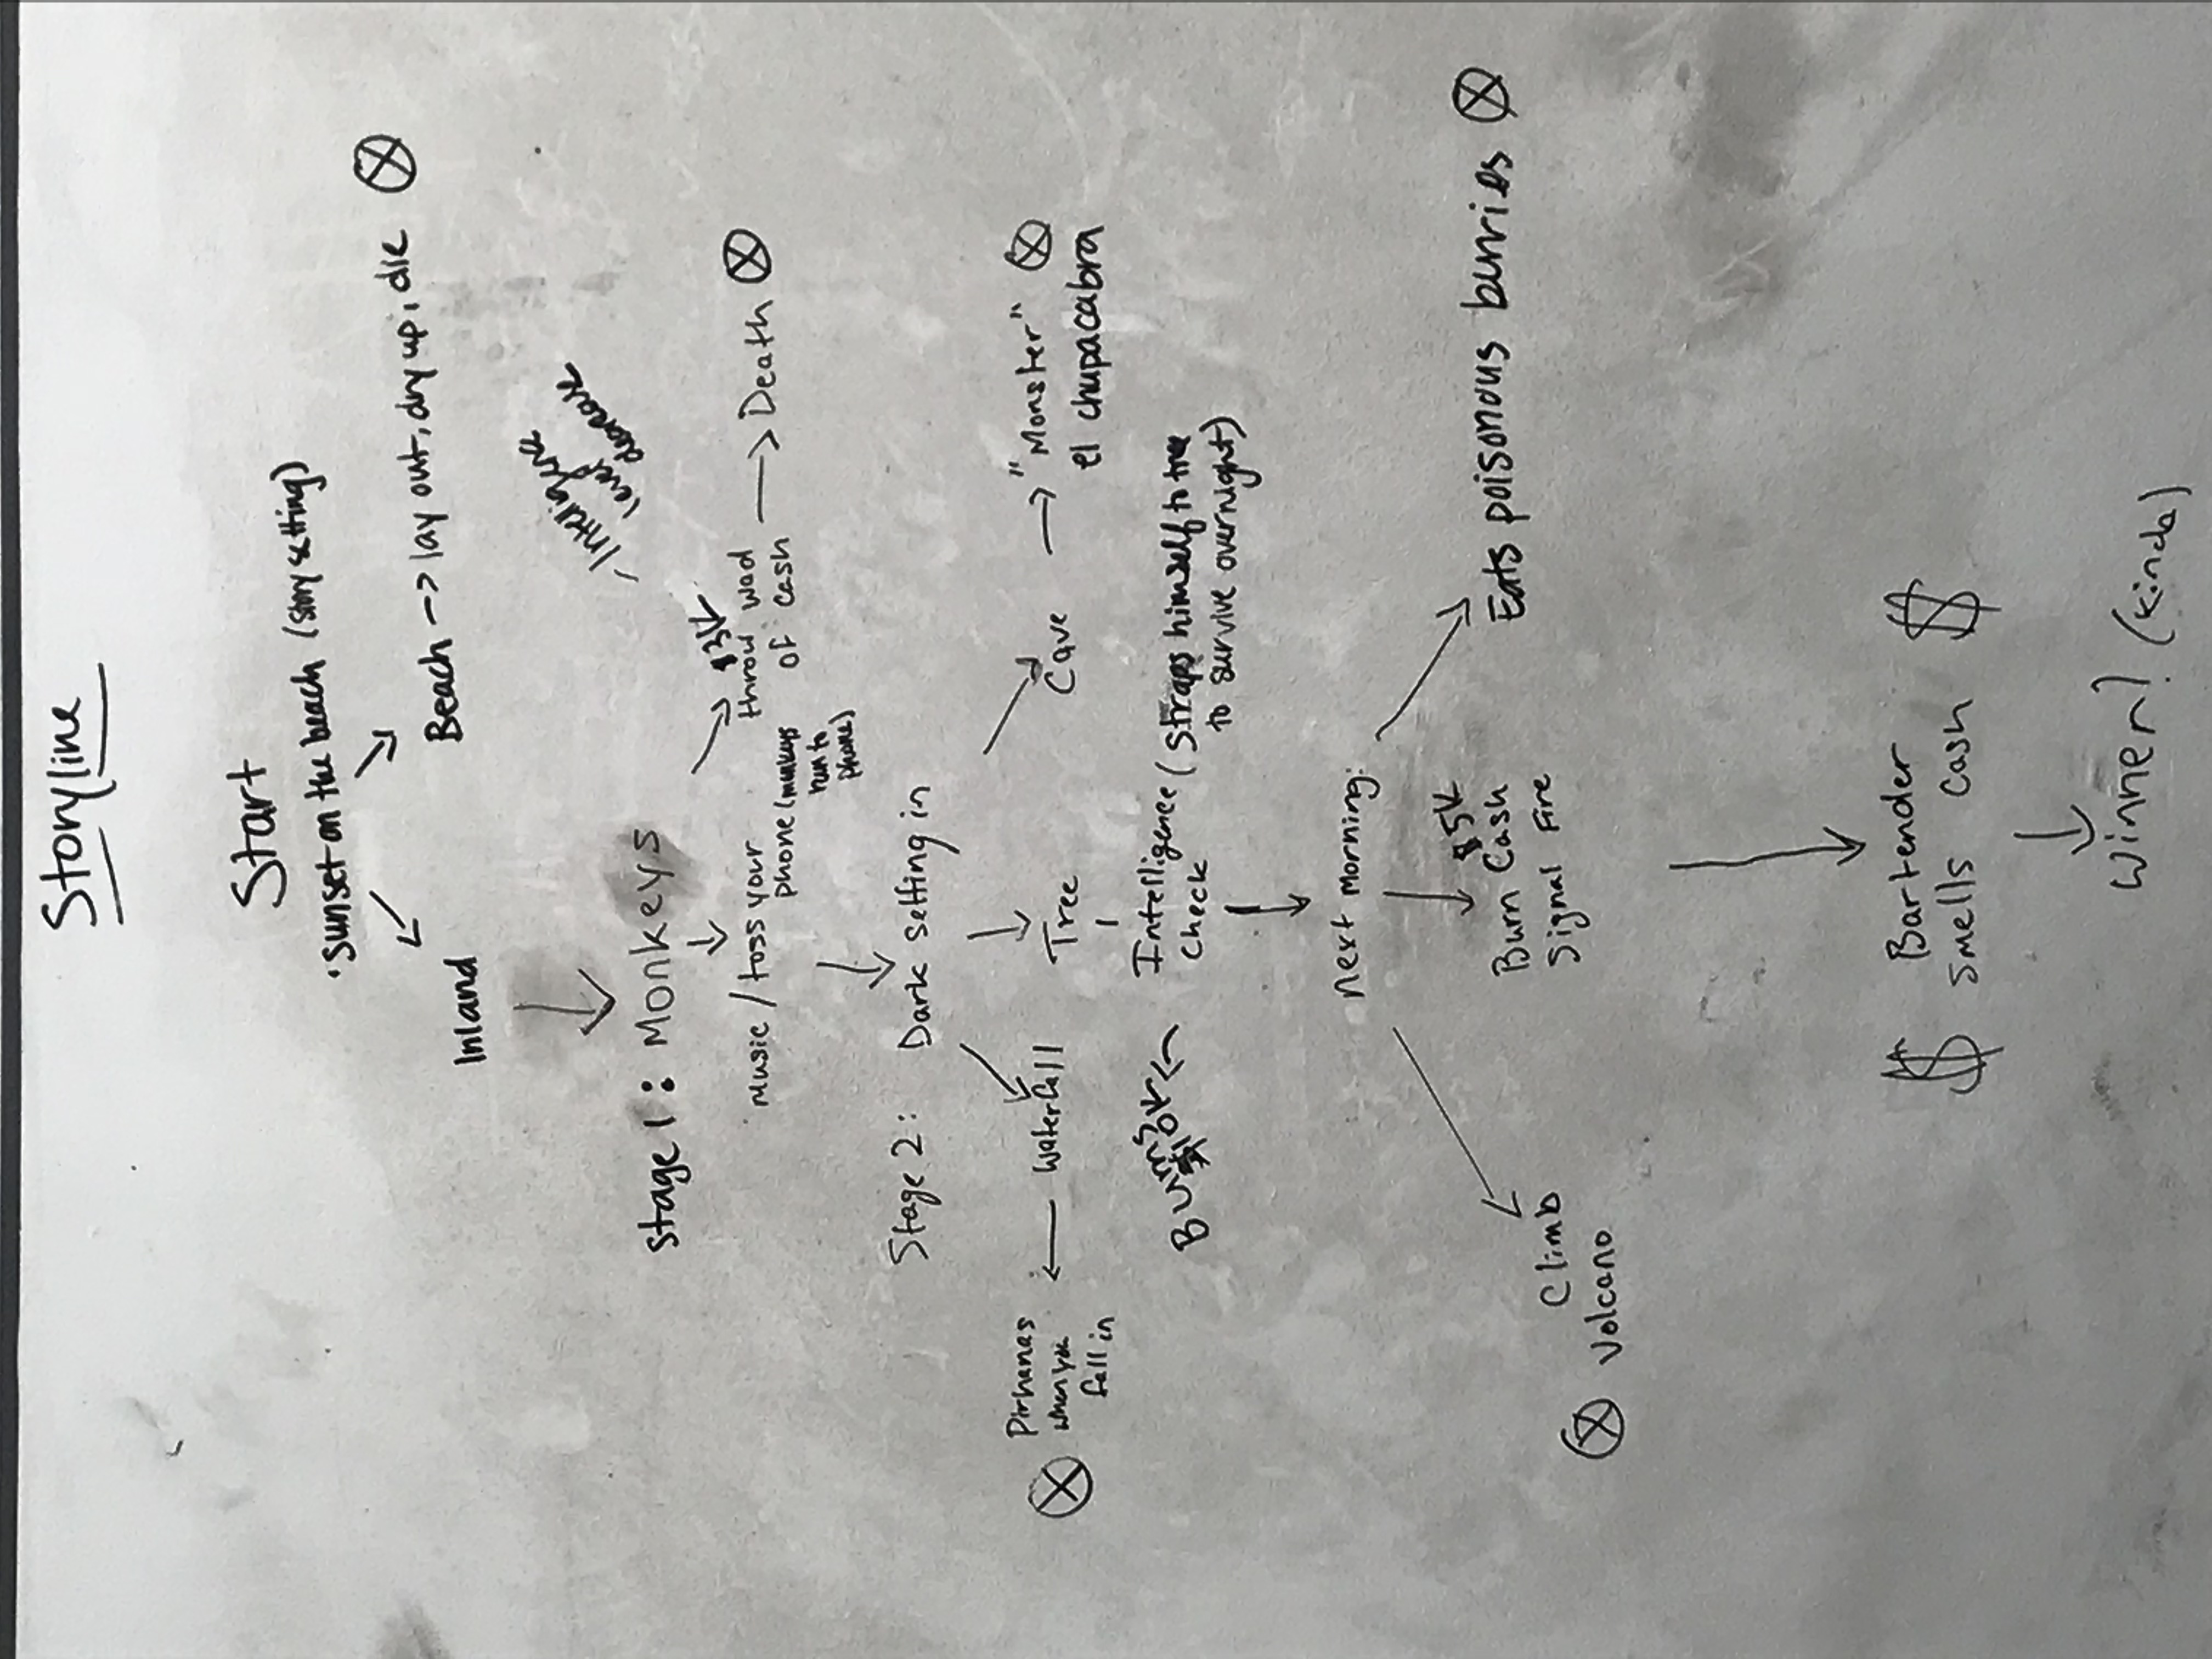 Storyline
Start
· Sunset on the beach (story setting)
Inland
Beach -> lay out, dry up, die
- Intelligence
level
decrease
Stage 1: Monkeys
Music / toss your
phone (monkeys
run to
phone)
$3K
throw wad
of cash
Death
Stage 2: Dark setting in
Pirhanas
when you
fall in
Waterfall
Tree
Cave
"Monster"
el chupacabra
Burns
$10K
Intelligence
Check
(Straps himself to tree
to survive overnight)
next morning:
Climb
Volcano
$5K
Burn Cash
Signal Fire
Eats poisonous burries
$ Bartender $
smells cash
Winner? (kinda)